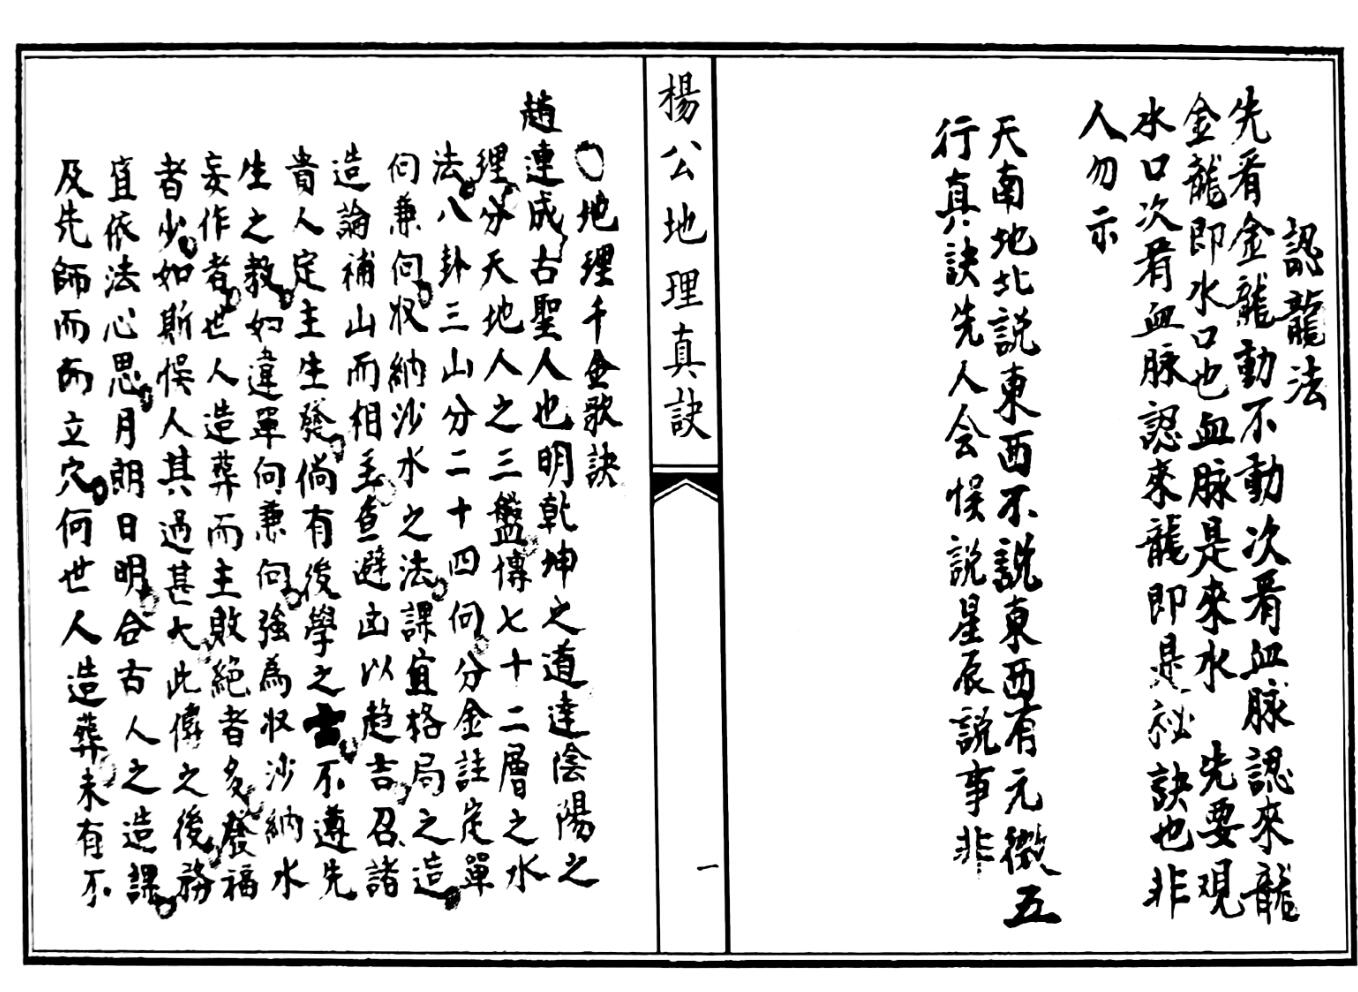 認龍法
先看金龍動不動次看血脉認來龍
金龍即水口也血脉是來水　先要观
水口次看血脉認來龍即是秘訣也非
人勿示
天南地北説東西不説東西有元微五
行真訣先人会悮説星辰説事非
楊公地理真訣
一
○地理千金歌訣
趙連成古聖人也明乾坤之道達陰陽之
理分天地人之三盤傳七十二層之水
法八卦三山分二十四向分金註定單
向兼向収納沙水之法課宜格局之造
造論補山而相主查避凶以趋吉召諸
貴人定主生發倘有後學之士不遵先
生之教如違單向兼向強為収沙納水
妄作者世人造葬而主敗絕者多發福
者少如斯悮人其過甚大此傳之後務
宜依法心思月朗日明合古人之造課
及先師而立穴何世人造葬未有不